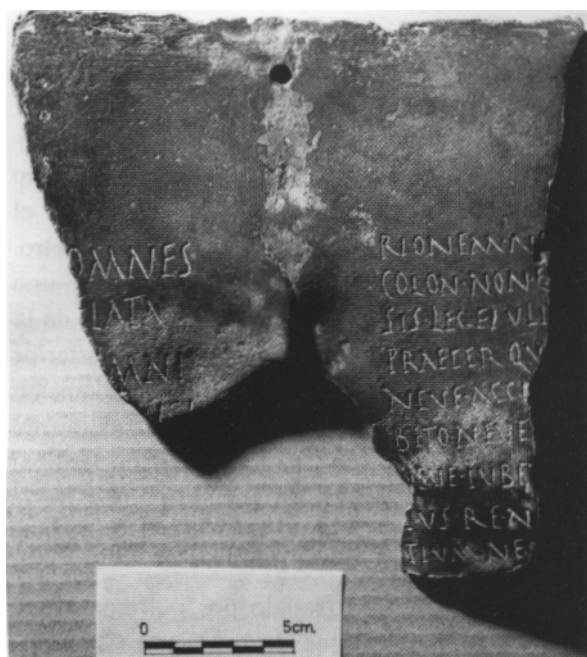 OMNES
LATA
MNI
RIONEMN
COLON·NON·
SISLEGEIVLI
PRAETERQV
NEVEACCI
BITONEVE
QVEIVBE
IVS·REN
0 5cm.